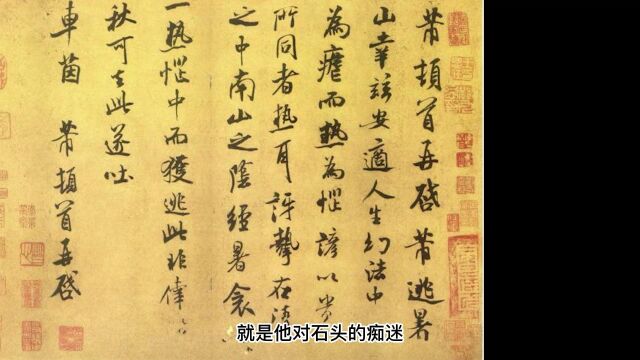 芾頓首再啓芾逃暑
山幸茲安適人生幻法中
為瘧而熱為惱諺以貴
所同者熱耳訝摯在清
之中南山之陰經暑衾
一熱惱中而獲逃此非倖
秋可去此遂吐
車茵 芾頓首再啓
就是他对石头的痴迷